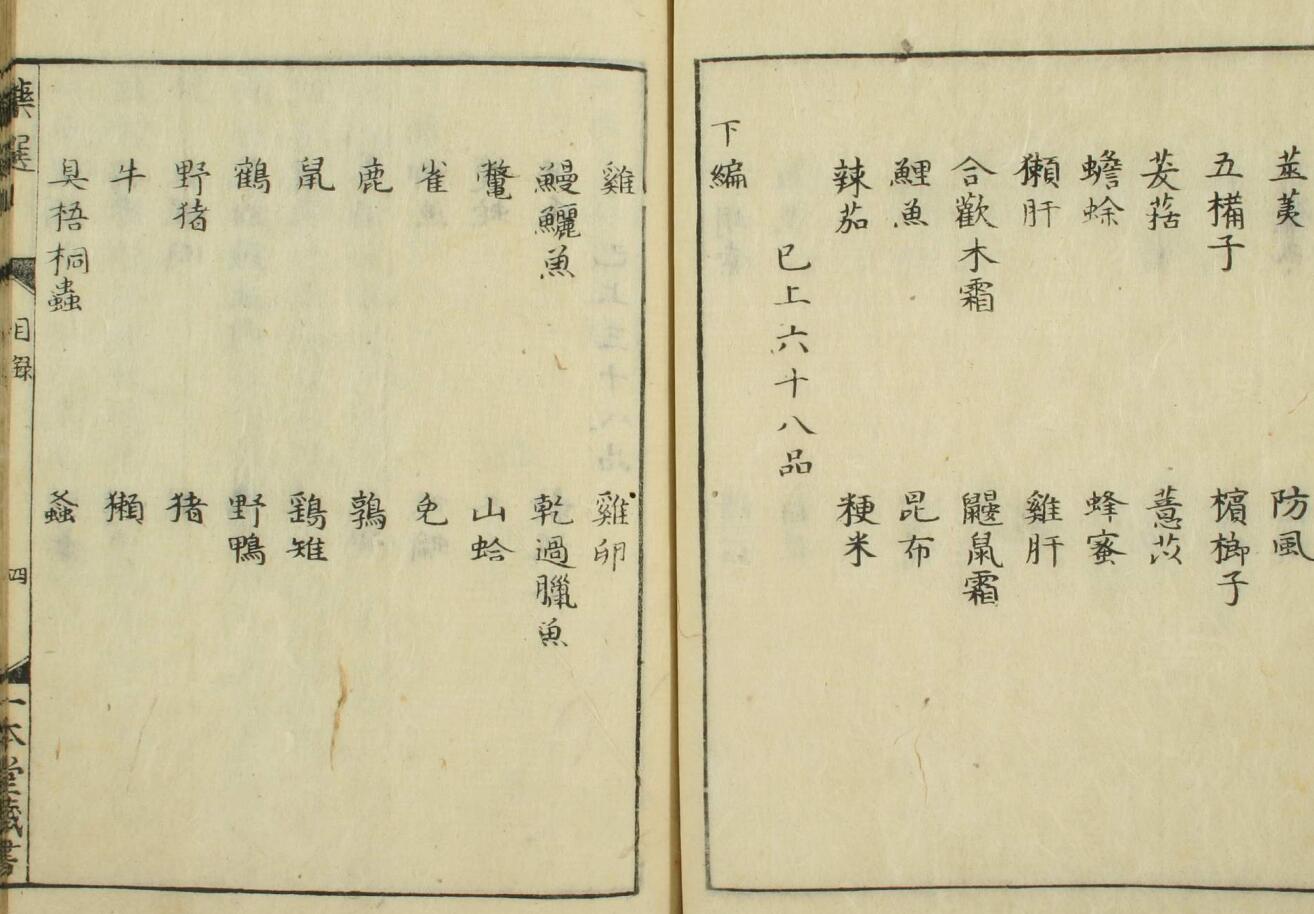 蕪荑　防風
五構子　檳榔子
茇葀　薏苡
蟾蜍　蜂蜜
獺肝　雞肝
合歡木霜　鼴鼠霜
鯉魚　昆布
辣茄　粳米
已上六十八品
下編
雞　雞卵
鰻鱺魚　乾過臘魚
鼈　山蛤
雀　兔
鹿　鶉
鼠　鷄雉
鶴　野鴨
野猪　猪
牛　獺
臭梧桐蟲　螽
藥選　目錄　四　一本堂藏書